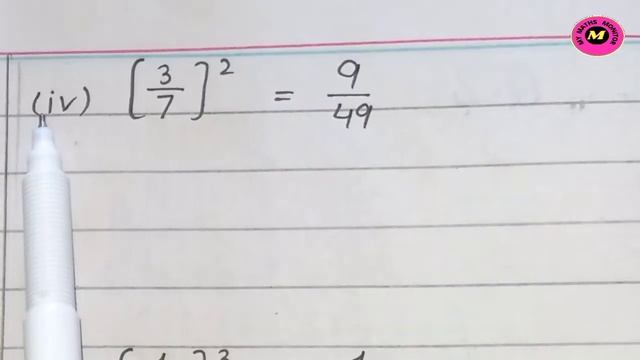 MY MATHS MONITOR M
(iv) [3/7]² = 9/49